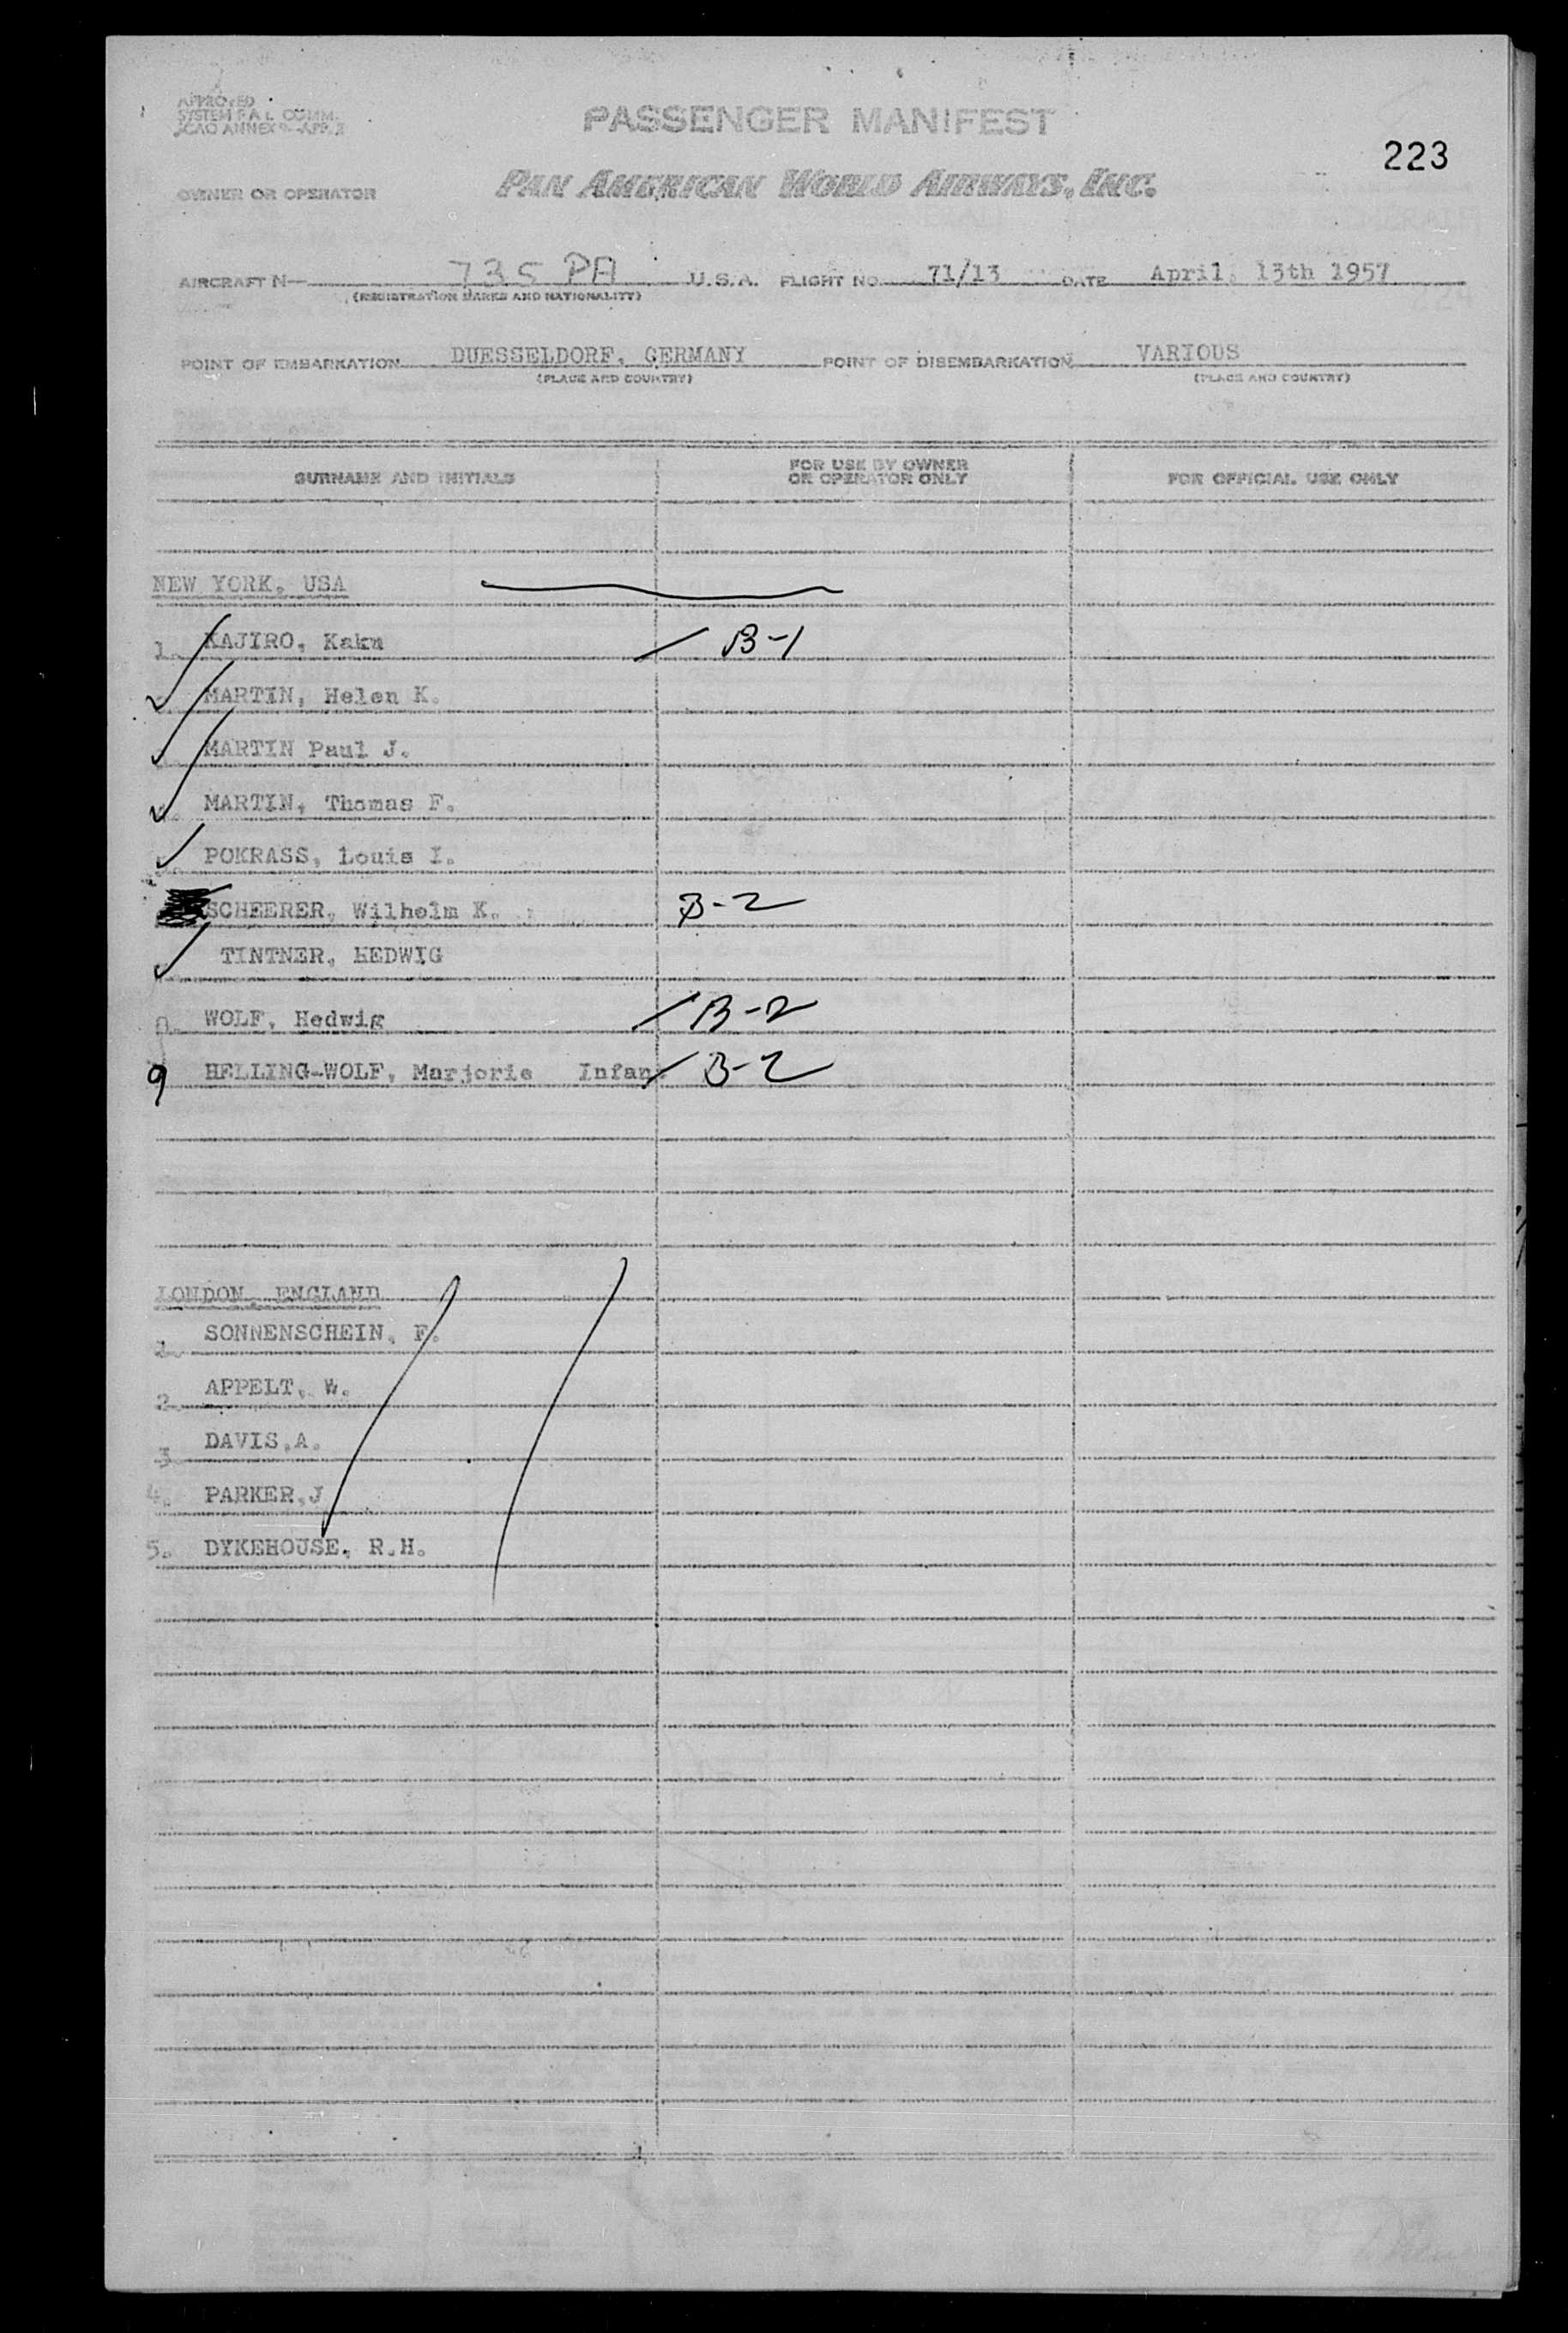 APPROVED
SYSTEM F.A.L. COMM.
ICAO ANNEX 9-APP. 2
PASSENGER MANIFEST
223
OWNER OR OPERATOR
PAN AMERICAN WORLD AIRWAYS, INC.
AIRCRAFT N— 735 PA U.S.A. FLIGHT NO. 71/13 DATE April, 13th 1957
(REGISTRATION MARKS AND NATIONALITY)
POINT OF EMBARKATION DUESSELDORF, GERMANY POINT OF DISEMBARKATION VARIOUS
(PLACE AND COUNTRY) (PLACE AND COUNTRY)
SURNAME AND INITIALS FOR USE BY OWNER OR OPERATOR ONLY FOR OFFICIAL USE ONLY
NEW YORK, USA
1. KAJIRO, Kaku B-1
MARTIN, Helen K.
MARTIN Paul J.
MARTIN, Thomas F.
POKRASS, Louis I.
SCHEERER, Wilhelm K. B-2
TINTNER, HEDWIG
8. WOLF, Hedwig B-2
9 HELLING-WOLF, Marjorie Infan B-2
LONDON, ENGLAND
1. SONNENSCHEIN, F.
2. APPELT, W.
3. DAVIS,A.
4. PARKER,J
5. DYKEHOUSE, R.H.